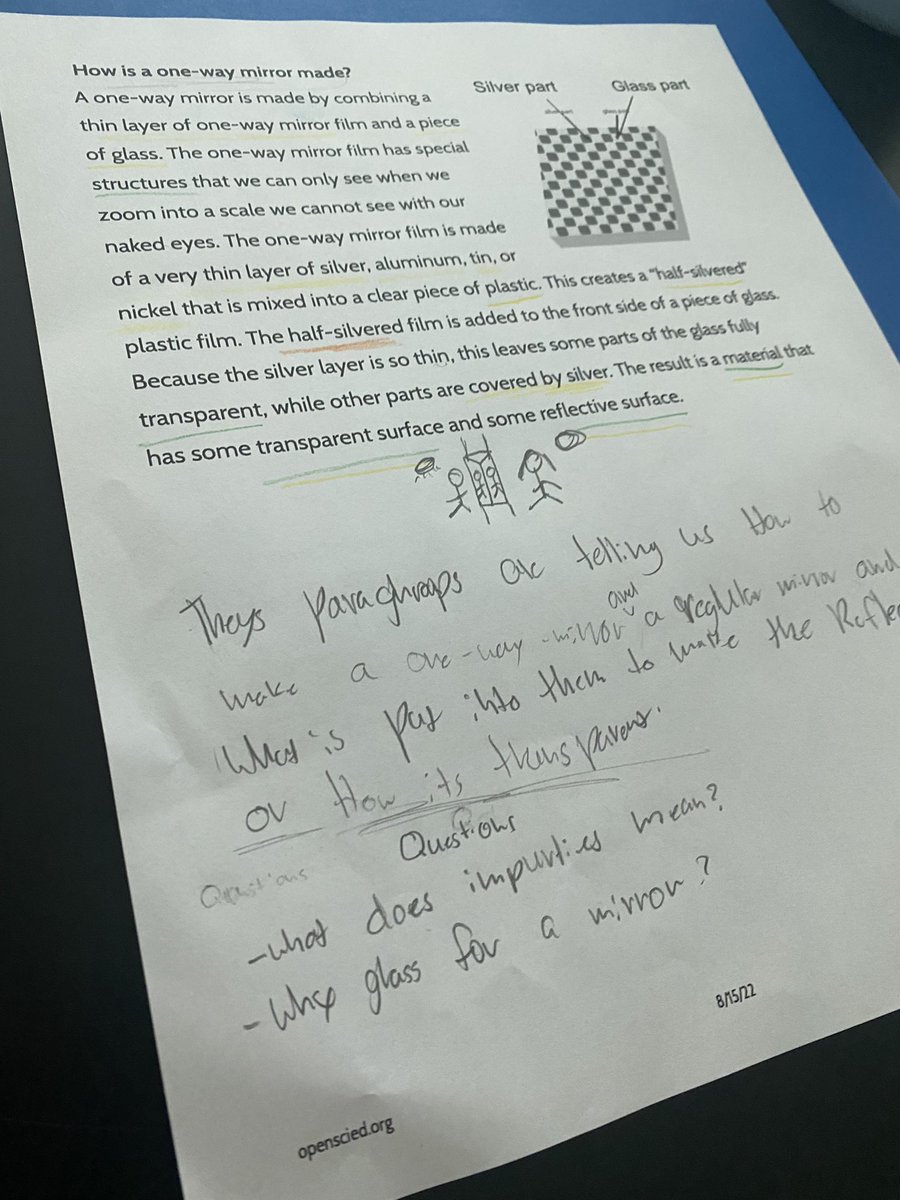 How is a one-way mirror made?
A one-way mirror is made by combining a
thin layer of one-way mirror film and a piece
of glass. The one-way mirror film has special
structures that we can only see when we
zoom into a scale we cannot see with our
naked eyes. The one-way mirror film is made
of a very thin layer of silver, aluminum, tin, or
nickel that is mixed into a clear piece of plastic. This creates a "half-silvered"
plastic film. The half-silvered film is added to the front side of a piece of glass.
Because the silver layer is so thin, this leaves some parts of the glass fully
transparent, while other parts are covered by silver. The result is a material that
has some transparent surface and some reflective surface.
Silver part
Glass part
Theys paragraps are telling us How to
make a one-way-mirror and a regular mirror and
what is put into them to make the Refle
or How its transparent.
Questions
Questions
-what does impurties mean?
-Why glass for a mirror?
8/15/22
openscied.org